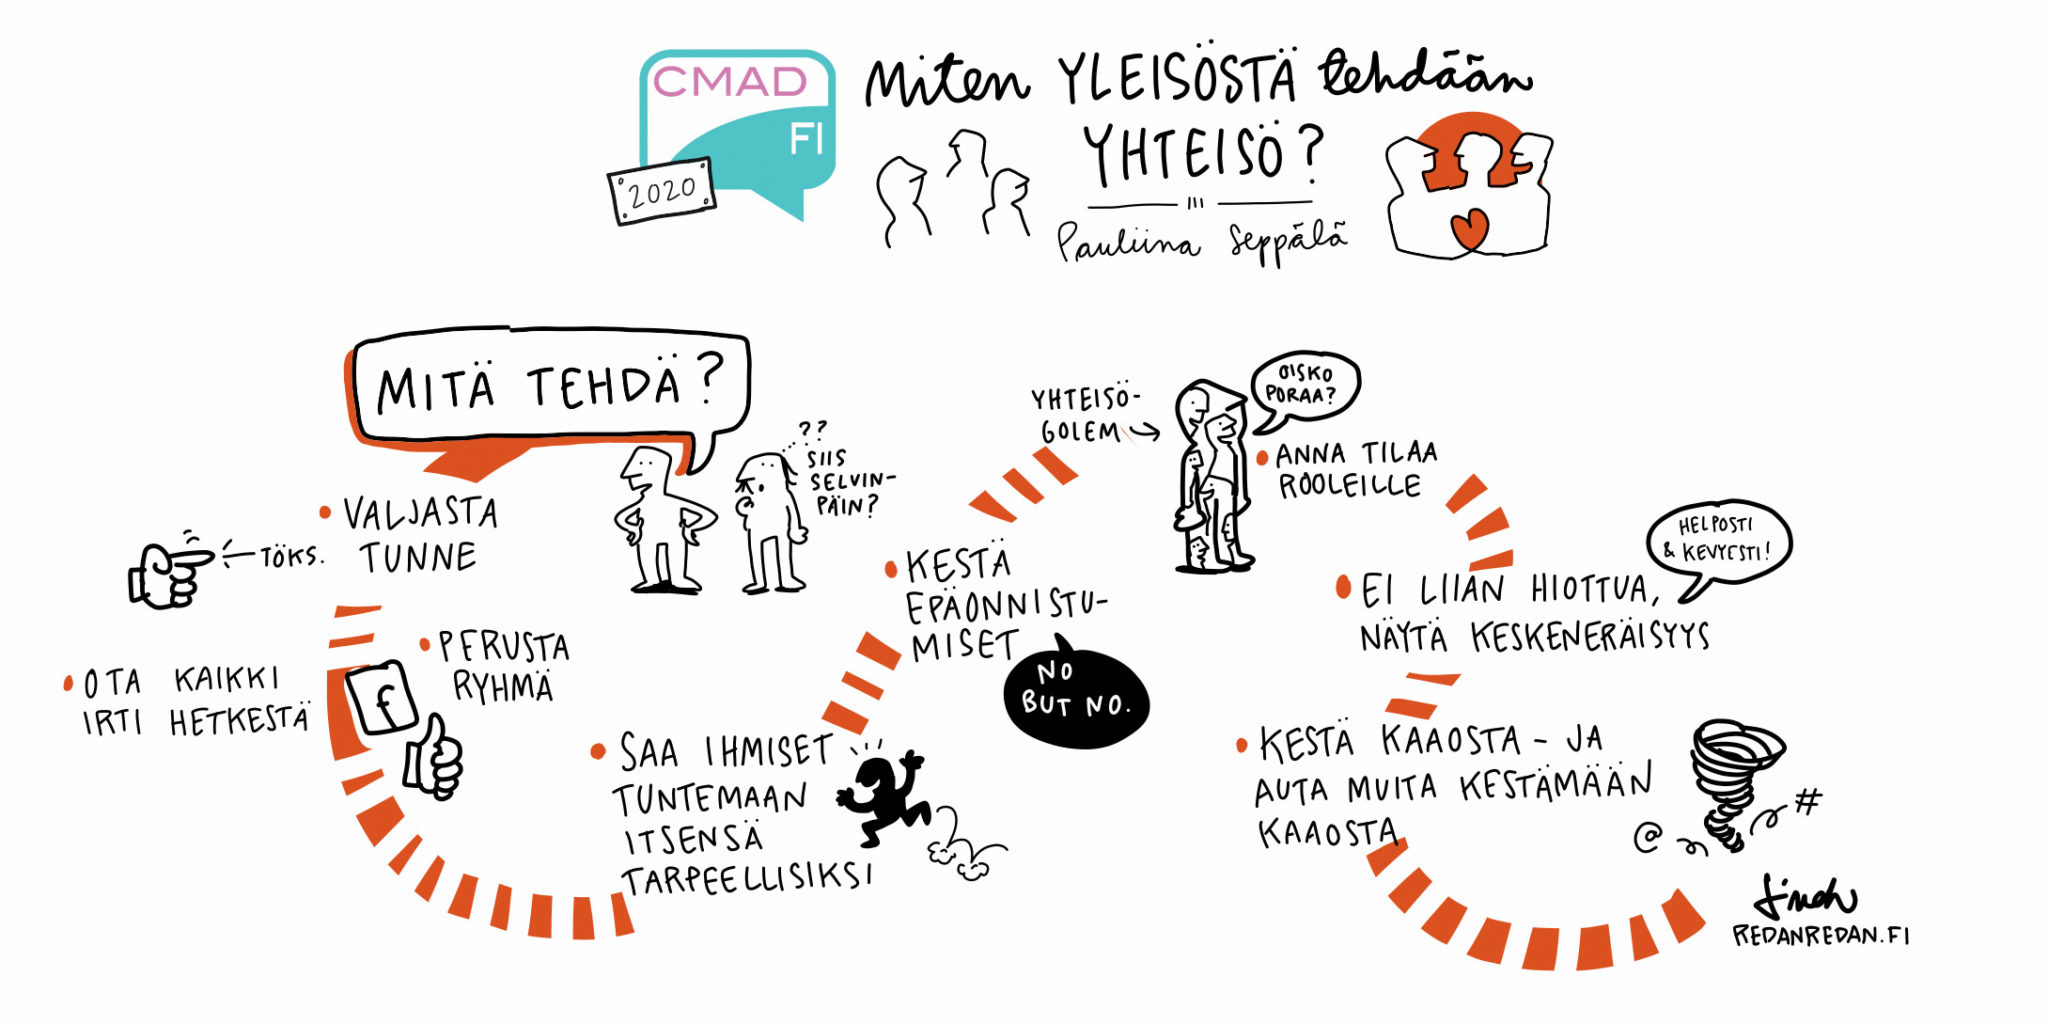 CMAD
FI
2020
Miten YLEISÖSTÄ tehdään
YHTEISÖ?
Pauliina Seppälä
MITÄ TEHDÄ?
??
SIIS
SELVIN-
PÄIN?
• VALJASTA
TUNNE
TÖKS.
• OTA KAIKKI
IRTI HETKESTÄ
• PERUSTA
RYHMÄ
f
• SAA IHMISET
TUNTEMAAN
ITSENSÄ
TARPEELLISIKSI
• KESTÄ
EPÄONNISTU-
MISET
NO
BUT NO.
YHTEISÖ-
GOLEM
OISKO
PORAA?
• ANNA TILAA
ROOLEILLE
• EI LIIAN HIOTTUA,
NÄYTÄ KESKENERÄISYYS
HELPOSTI
& KEVYESTI!
• KESTÄ KAAOSTA - JA
AUTA MUITA KESTÄMÄÄN
KAAOSTA
@
#
REDANREDAN.FI